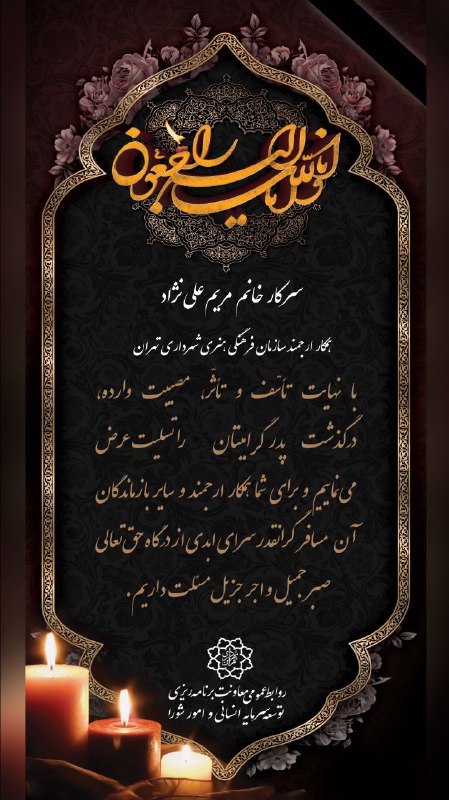 انا لله و انا الیه راجعون
سرکار خانم مریم علی نژاد
همکار ارجمند سازمان فرهنگی هنری شهرداری تهران
با نهایت تأسف و تأثّر، مصیبت وارده،
درگذشت پدر گرامیتان را تسلیت عرض
می‌نماییم و برای شما همکار ارجمند و سایر بازماندگان
آن مسافر گرانقدر سرای ابدی از درگاه حق تعالی
صبر جمیل و اجر جزیل مسئلت داریم.
روابط عمومی معاونت برنامه‌ریزی
توسعه سرمایه انسانی و امور شورا